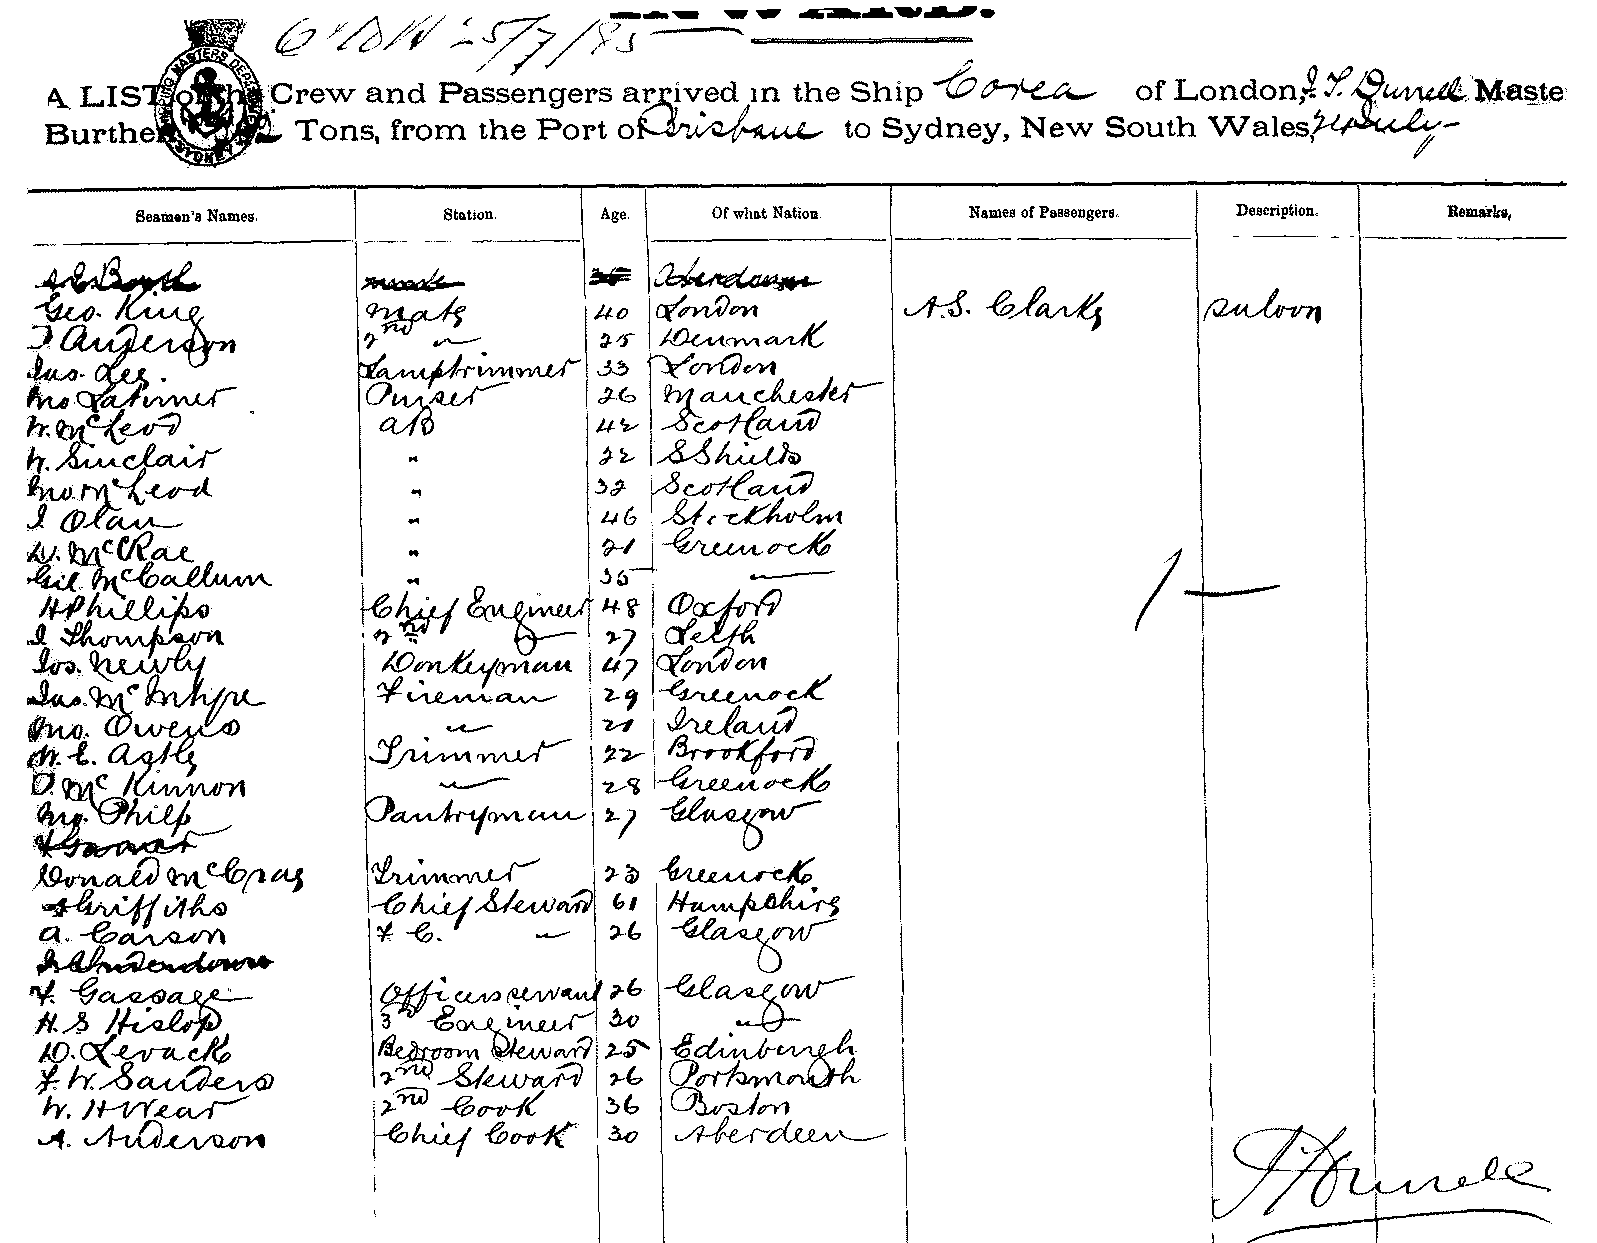 25/7/85
A LIST of the Crew and Passengers arrived in the Ship Corea of London, J. T. Durrell Maste
Burthen Tons, from the Port of Brisbane to Sydney, New South Wales, July
Seamen's Names. Station. Age. Of what Nation. Names of Passengers. Description. Remarks,
Geo. King mate 40 London A.S. Clarke saloon
Anderson 2nd " 25 Denmark
Jas. Lee. Lamptrimmer 33 London
Jno Latimer Purser 26 Manchester
W. McLeod AB 42 Scotland
W. Sinclair " 22 S Shields
Jno McLeod " 32 Scotland
J Olan " 46 Stockholm
D. McRae " 21 Greenock
Gil. McCallum " 35 "
H Phillips Chief Engineer 48 Oxford
J Thompson 2nd " 27 Leith
Jos. Newly Donkeyman 47 London
Jas. McIntyre Fireman 29 Greenock
Jno. Owens " 21 Ireland
W. E. Astle Trimmer 22 Brookford
D. McKinnon " 28 Greenock
Jno. Philp Pantryman 27 Glasgow
Donald McCray Trimmer 23 Greenock
Griffiths Chief Steward 61 Hampshire
A. Carson F C. " 26 Glasgow
F. Gassage Officers servant 26 Glasgow
H. S Hislop 3rd Engineer 30 "
D. Levack Bedroom Steward 25 Edinburgh
F. W. Sanders 2nd Steward 26 Portsmouth
W. H Wear 2nd Cook 36 Boston
A. Anderson Chief Cook 30 Aberdeen
J T Durrell